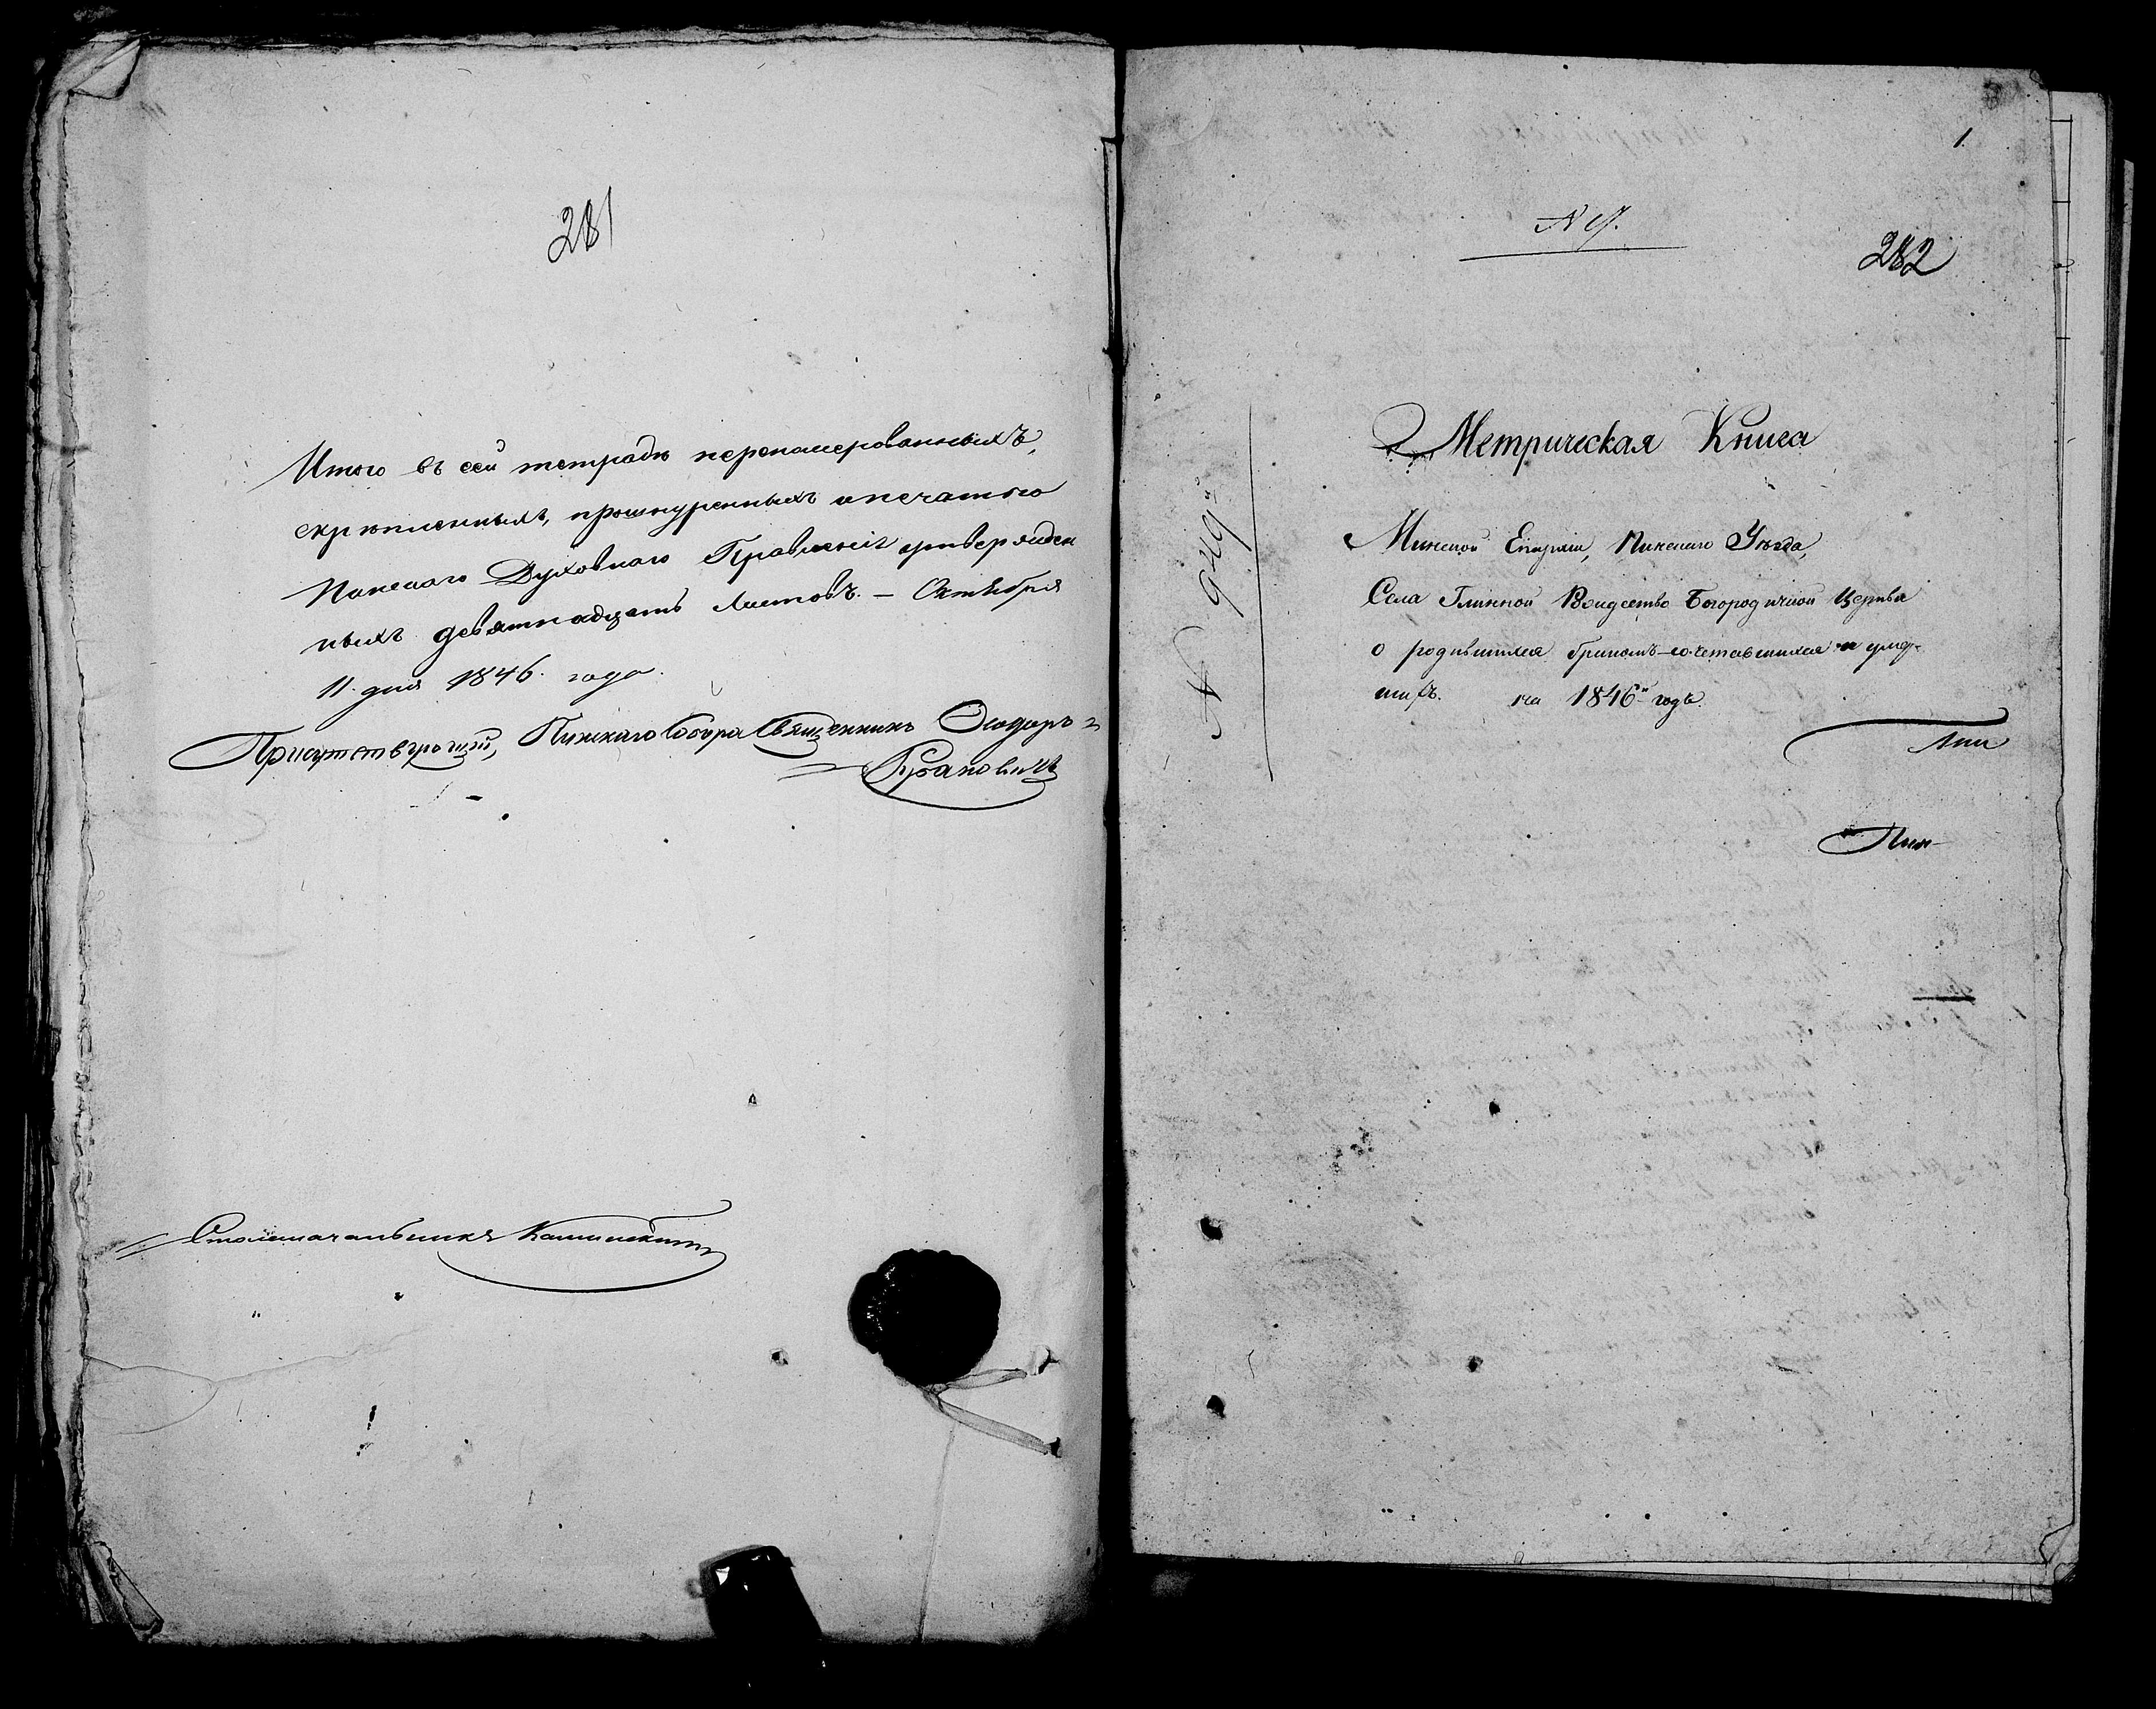 281
Итого въ сей тетради перономерованныхъ,
скрѣпленныхъ, прошнуренныхъ и печатью
Пинскаго Духовнаго Правленія утвержден
ныхъ девятнадцать листовъ. — Октября
11. дня 1846. года.
Присутствующій, Пинскаго Собора Священникъ Ѳеодоръ
Столоначальникъ
1.
282
Метрическая Книга
Минской Епархіи, Пинскаго Уѣзда,
Села Глинной Рождество Богородичной Церкви
о родившихся бракомъ-сочетавшихся и умер-
шихъ. на 1846й годъ.
Пин-